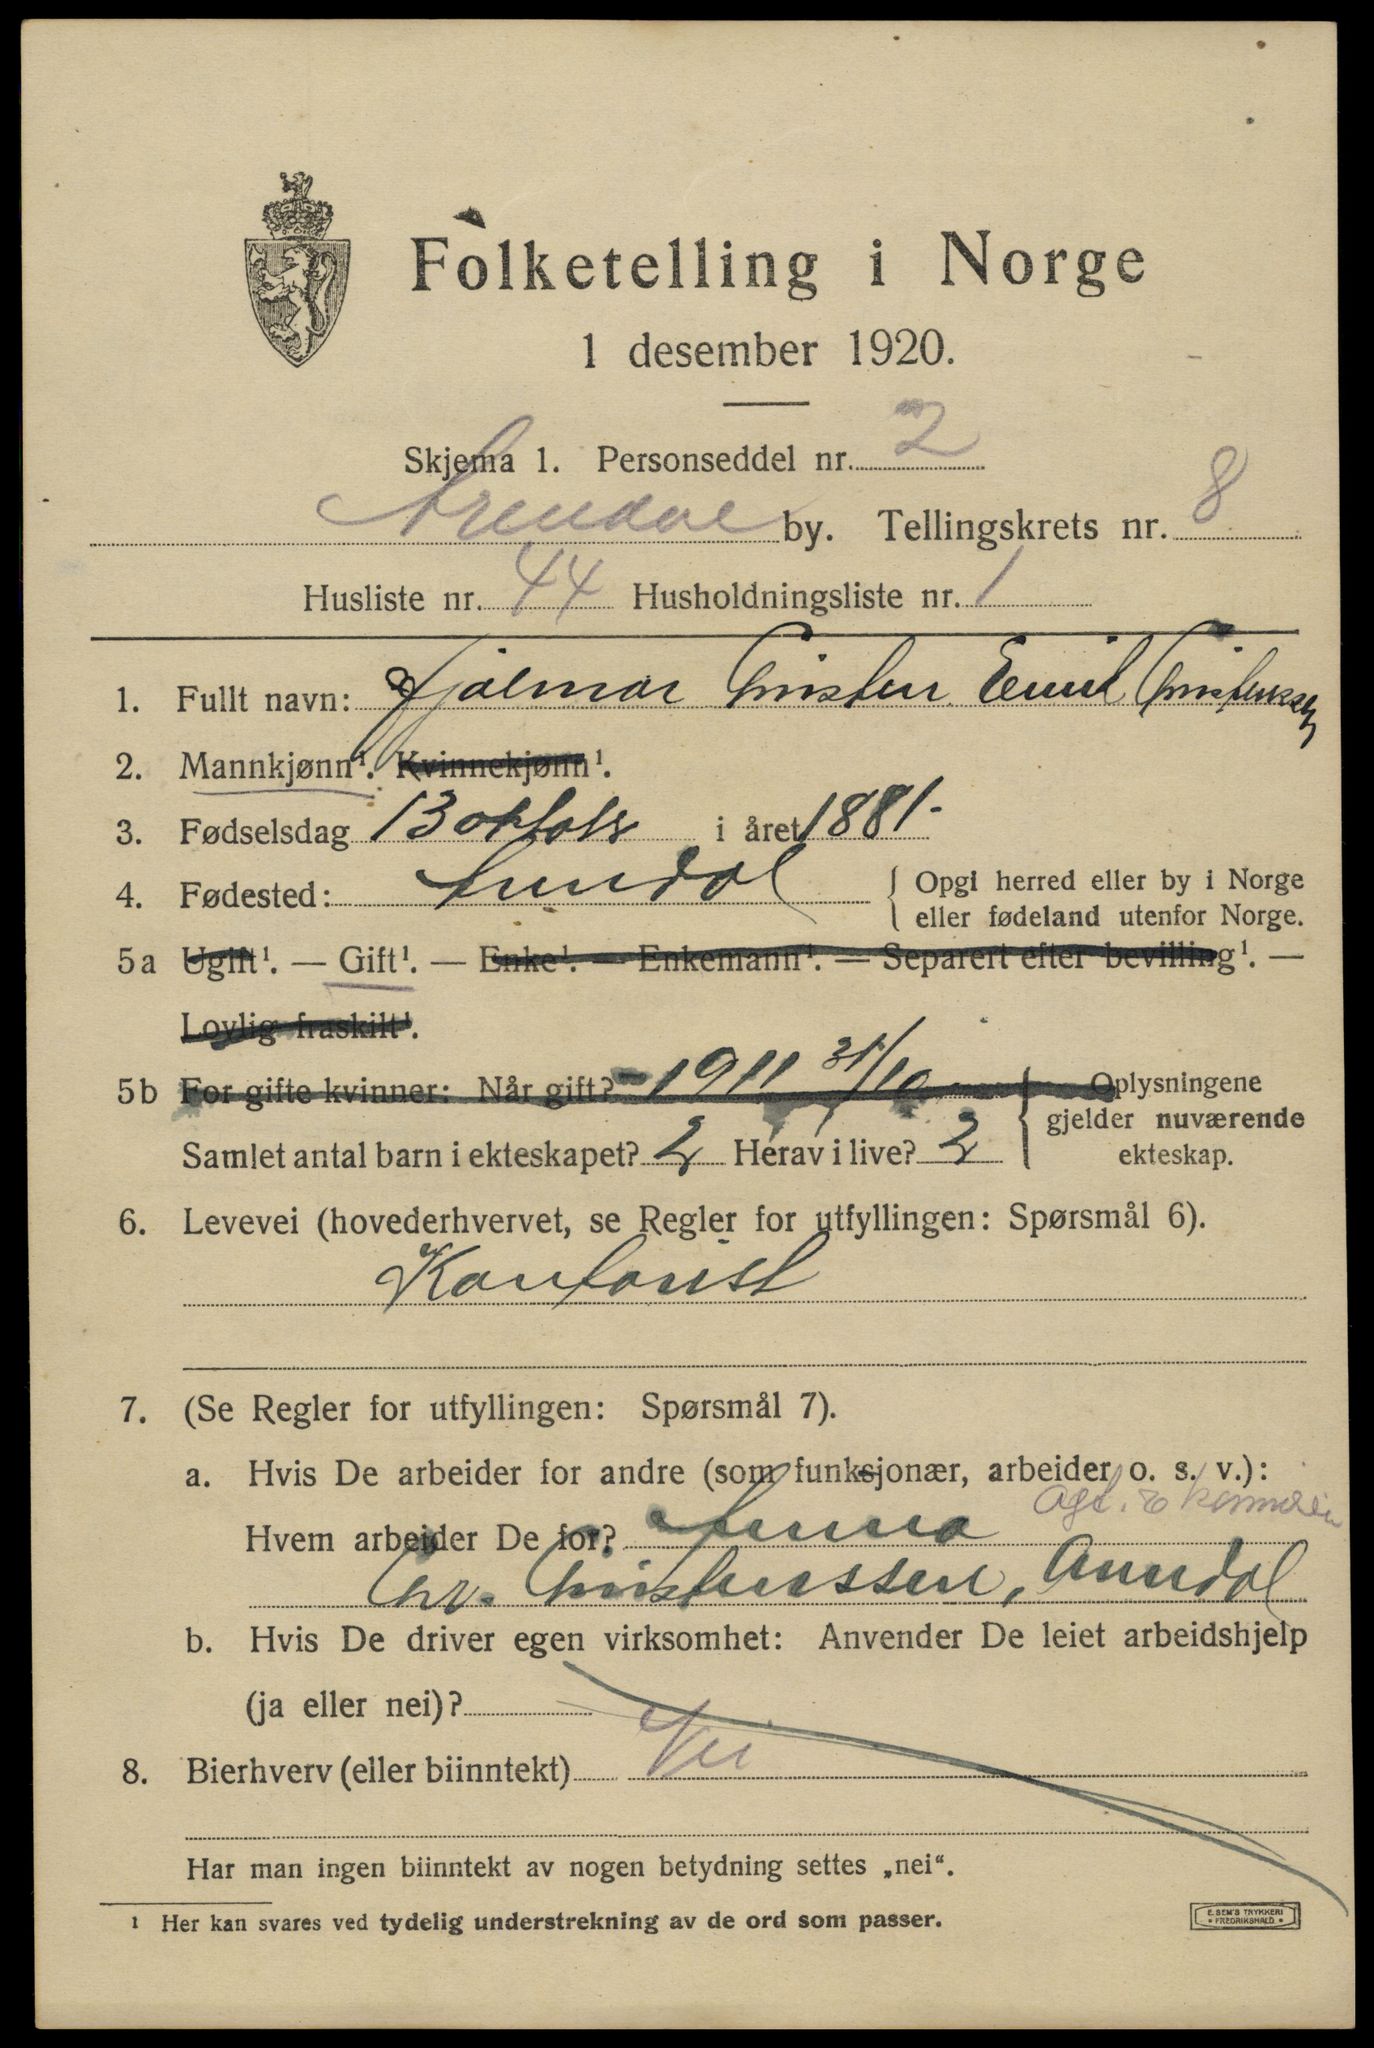 Folketelling i Norge
1 desember 1920.
Skjema 1. Personseddel nr. 2
Arendal by. Tellingskrets nr. 8
Husliste nr. 44 Husholdningsliste nr. 1
1. Fullt navn: Hjalmar Christen Emil Christenssen
2. Mannkjønn¹. Kvinnekjønn¹.
3. Fødselsdag 13 oktobr i året 1881-
4. Fødested: Arendal { Opgi herred eller by i Norge
eller fødeland utenfor Norge.
5a Ugift¹. — Gift¹. — Enke¹. — Enkemann¹. — Separert efter bevilling¹. —
Lovlig fraskilt¹.
5b For gifte kvinner: Når gift? 1911 31/10 { Oplysningene
gjelder nuværende
Samlet antal barn i ekteskapet? 2 Herav i live? 2 ekteskap.
6. Levevei (hovederhvervet, se Regler for utfyllingen: Spørsmål 6).
Kontorist
7. (Se Regler for utfyllingen: Spørsmål 7).
a. Hvis De arbeider for andre (som funksjonær, arbeider o. s. v.):
Agt.
Hvem arbeider De for? Firma
Chr. Christenssen, Arendal
b. Hvis De driver egen virksomhet: Anvender De leiet arbeidshjelp
(ja eller nei)?
8. Bierhverv (eller biinntekt) Nei
Har man ingen biinntekt av nogen betydning settes „nei“.
¹ Her kan svares ved tydelig understrekning av de ord som passer.
E. SEM'S TRYKKERI
• FREDRIKSHALD •